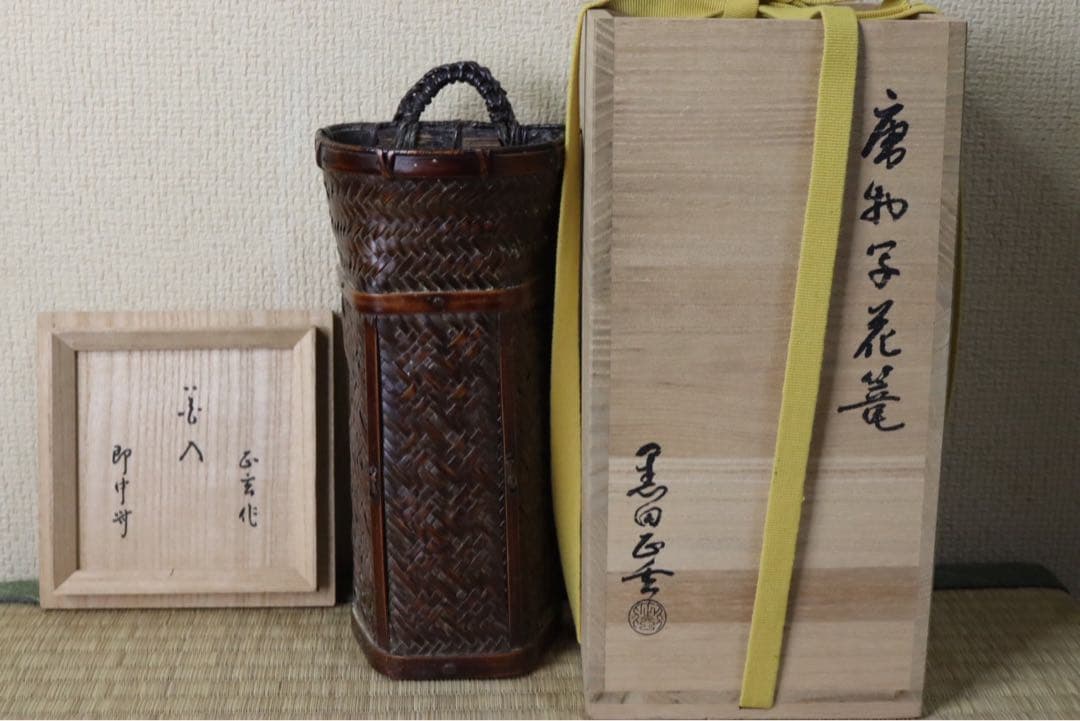 唐物写花篭
黒田正玄
正玄作
花入
即中斎